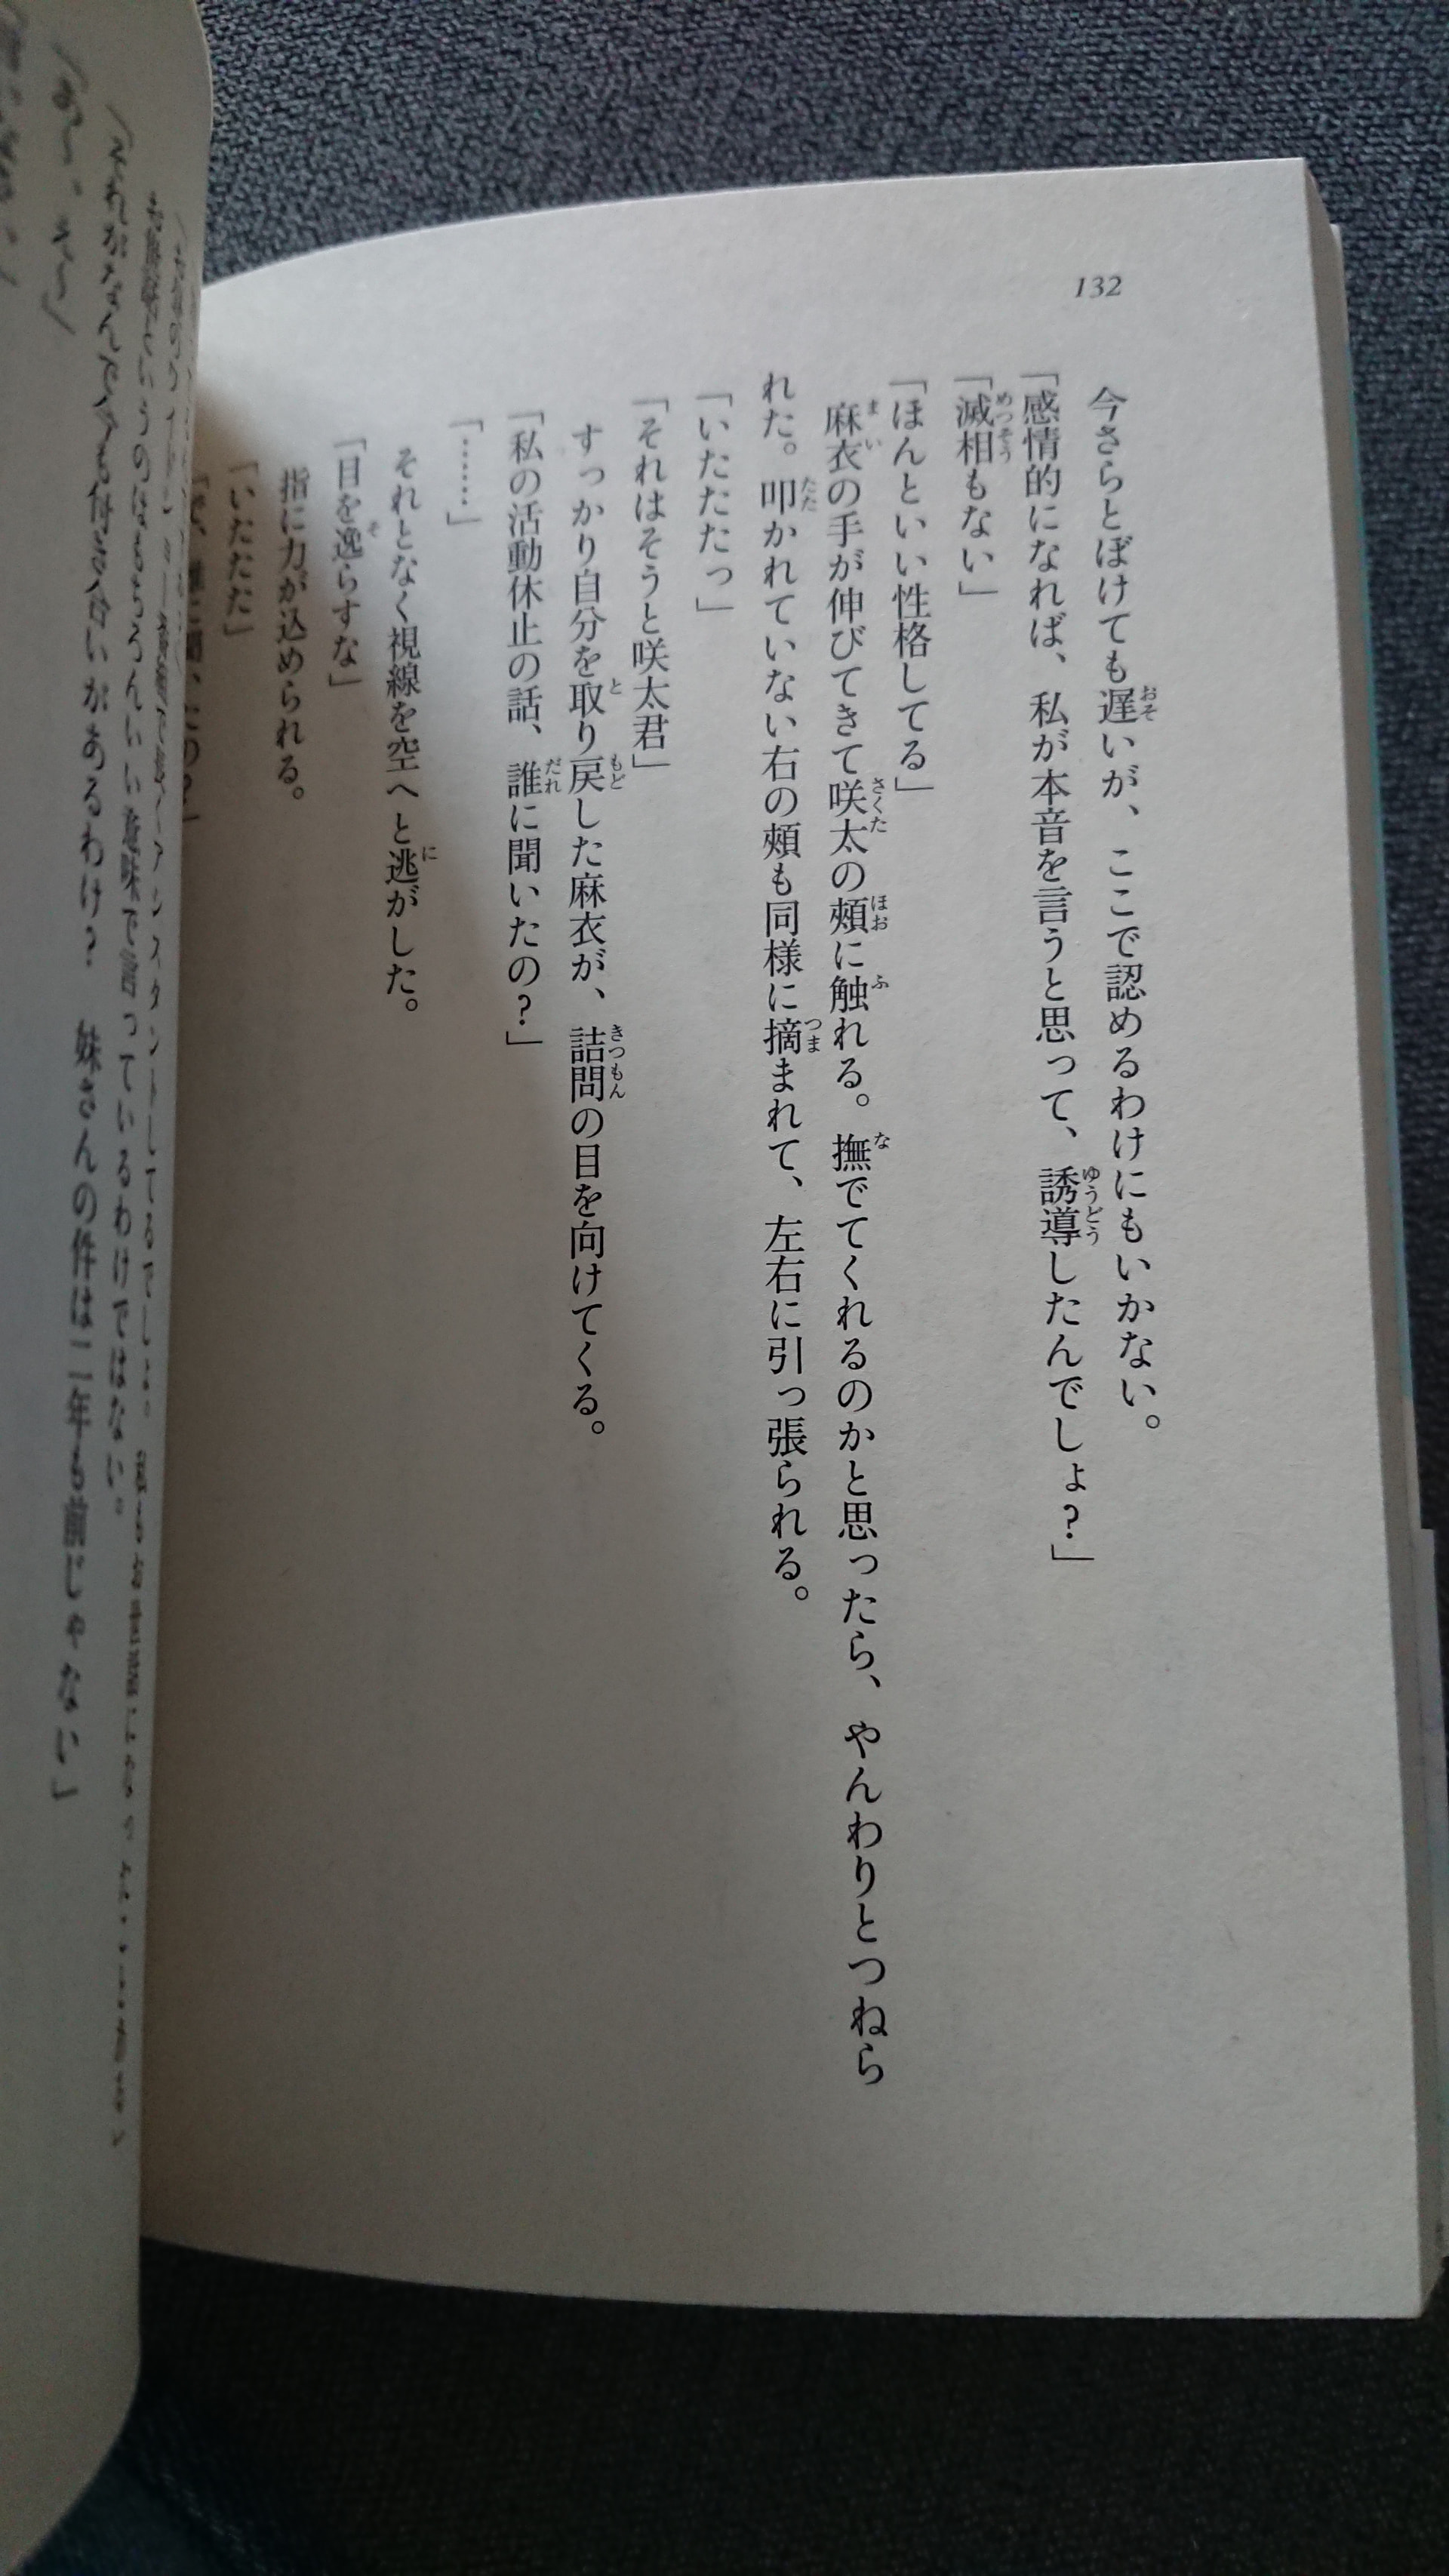 132
今さらとぼけても遅いが、ここで認めるわけにもいかない。
「感情的になれば、私が本音を言うと思って、誘導したんでしょ？」
「滅相もない」
「ほんといい性格してる」
麻衣の手が伸びてきて咲太の頰に触れる。撫でてくれるのかと思ったら、やんわりとつねら
れた。叩かれていない右の頰も同様に摘まれて、左右に引っ張られる。
「いたたたっ」
「それはそうと咲太君」
すっかり自分を取り戻した麻衣が、詰問の目を向けてくる。
「私の活動休止の話、誰に聞いたの？」
「……」
それとなく視線を空へと逃がした。
「目を逸らすな」
指に力が込められる。
「いたたた」
「で、誰に聞いたの？」
というのはもちろんいい意味で言っているわけではない。
いがあるわけ？　妹さんの件は二年も前じゃない」